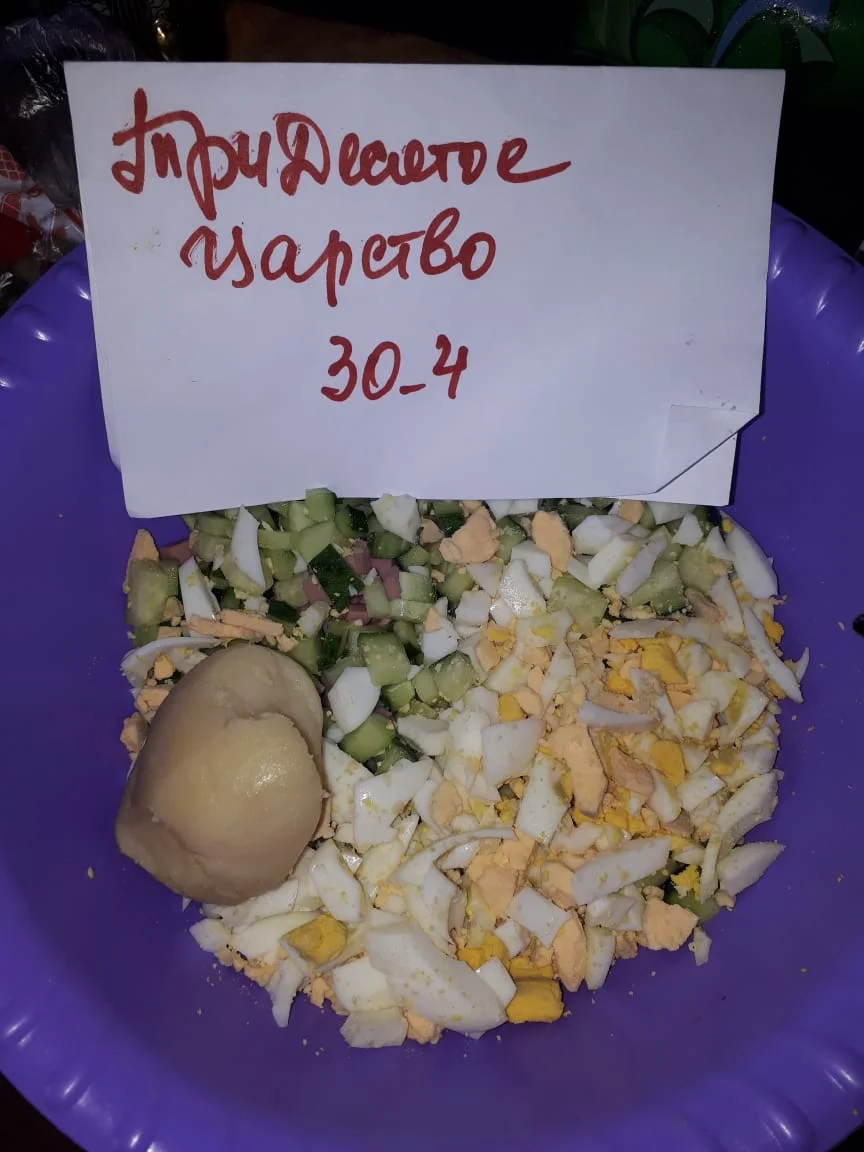 ТриДесятое
царство
30-4